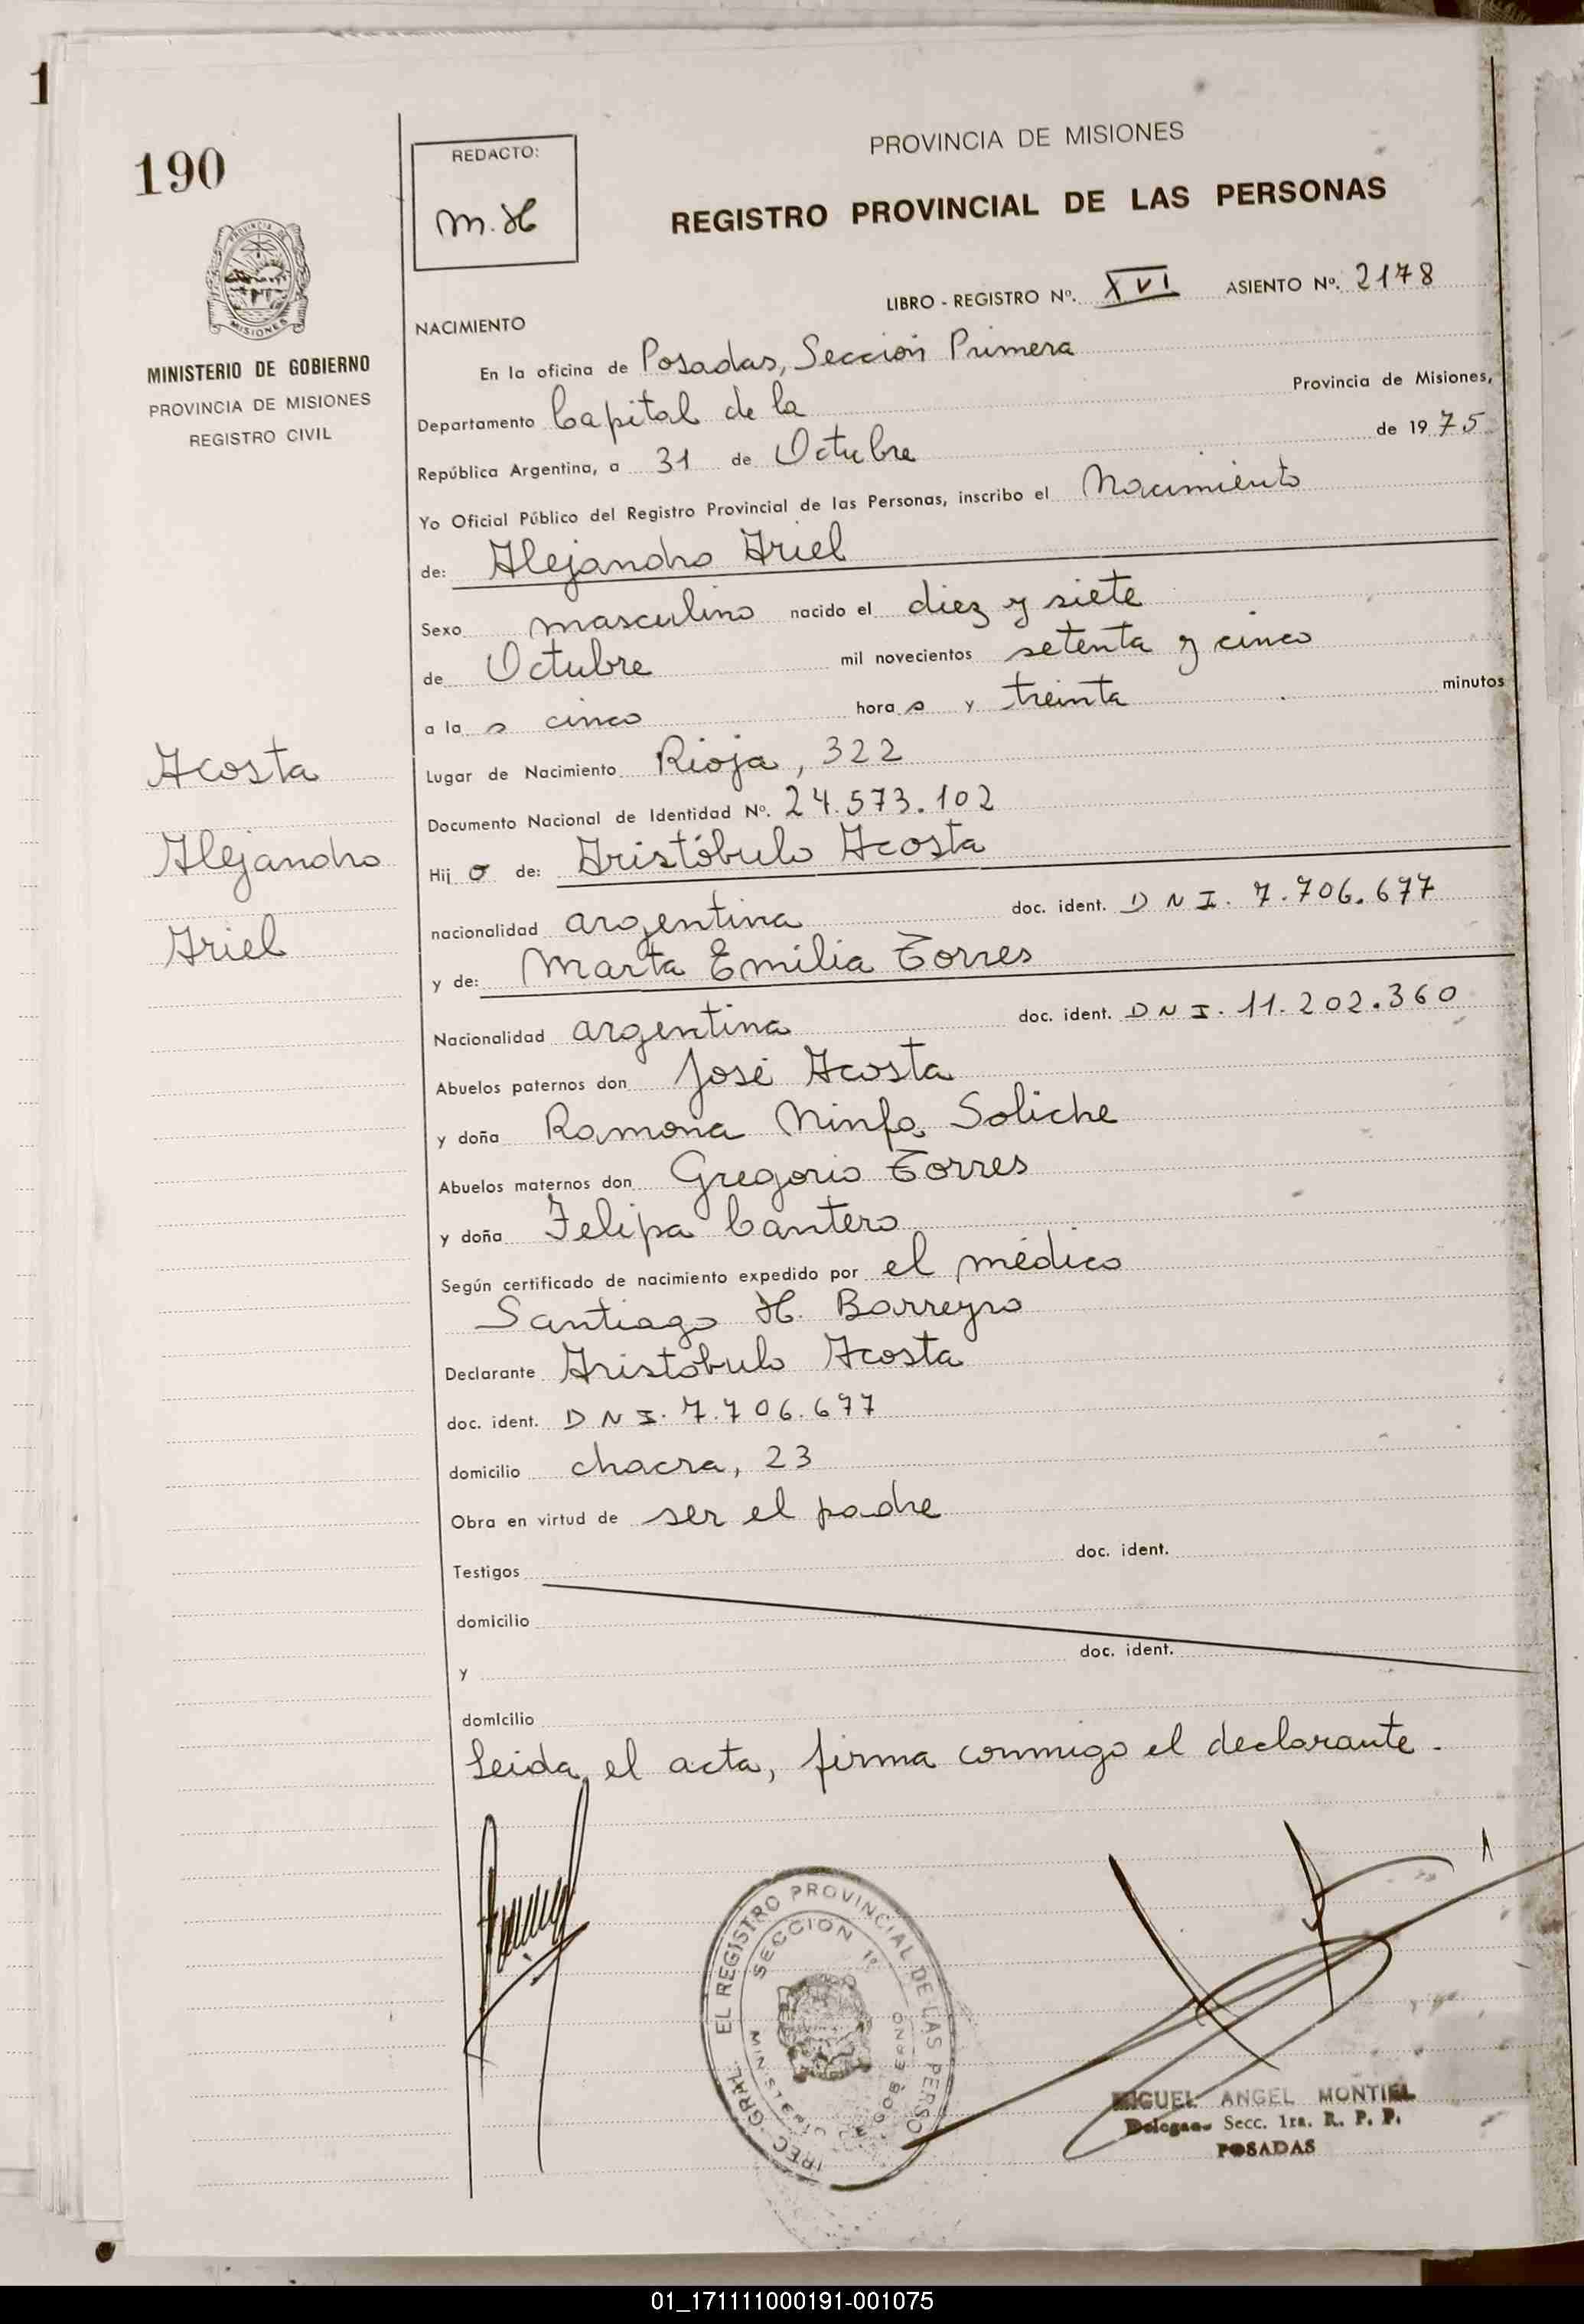 1
190
REDACTO:
m.H
PROVINCIA DE MISIONES
REGISTRO PROVINCIAL DE LAS PERSONAS
LIBRO - REGISTRO Nº. XVI ASIENTO Nº. 2178
PROVINCIA DE
MISIONES
MINISTERIO DE GOBIERNO
PROVINCIA DE MISIONES
REGISTRO CIVIL
NACIMIENTO
En la oficina de Posadas, Sección Primera
Departamento Capital de la Provincia de Misiones,
República Argentina, a 31 de Octubre de 1975
Yo Oficial Público del Registro Provincial de las Personas, inscribo el Nacimiento
de: Alejandro Ariel
Sexo masculino nacido el diez y siete
de Octubre mil novecientos setenta y cinco
a la s cinco hora s y treinta minutos
Acosta
Alejandro
Ariel
Lugar de Nacimiento Rioja, 322
Documento Nacional de Identidad Nº. 24.573.102
Hij o de: Aristóbulo Acosta
nacionalidad argentina doc. ident. D N I. 7.706.677
y de: Marta Emilia Torres
Nacionalidad argentina doc. ident. D N I. 11.202.360
Abuelos paternos don José Acosta
y doña Ramona Ninfa Soliche
Abuelos maternos don Gregorio Torres
y doña Felipa Cantero
Según certificado de nacimiento expedido por el médico
Santiago H. Barreyro
Declarante Aristóbulo Acosta
doc. ident. D N I. 7.706.677
domicilio chacra, 23
Obra en virtud de ser el padre
Testigos doc. ident.
domicilio
y doc. ident.
domicilio
Leida el acta, firma conmigo el declarante.
EL REGISTRO PROVINCIAL DE LAS PERSO
SECCION 1ª
MINISTERIO DE GOBIERNO
MIGUEL ANGEL MONTIEL
Delegado Secc. 1ra. R. P. P.
POSADAS
01_171111000191-001075